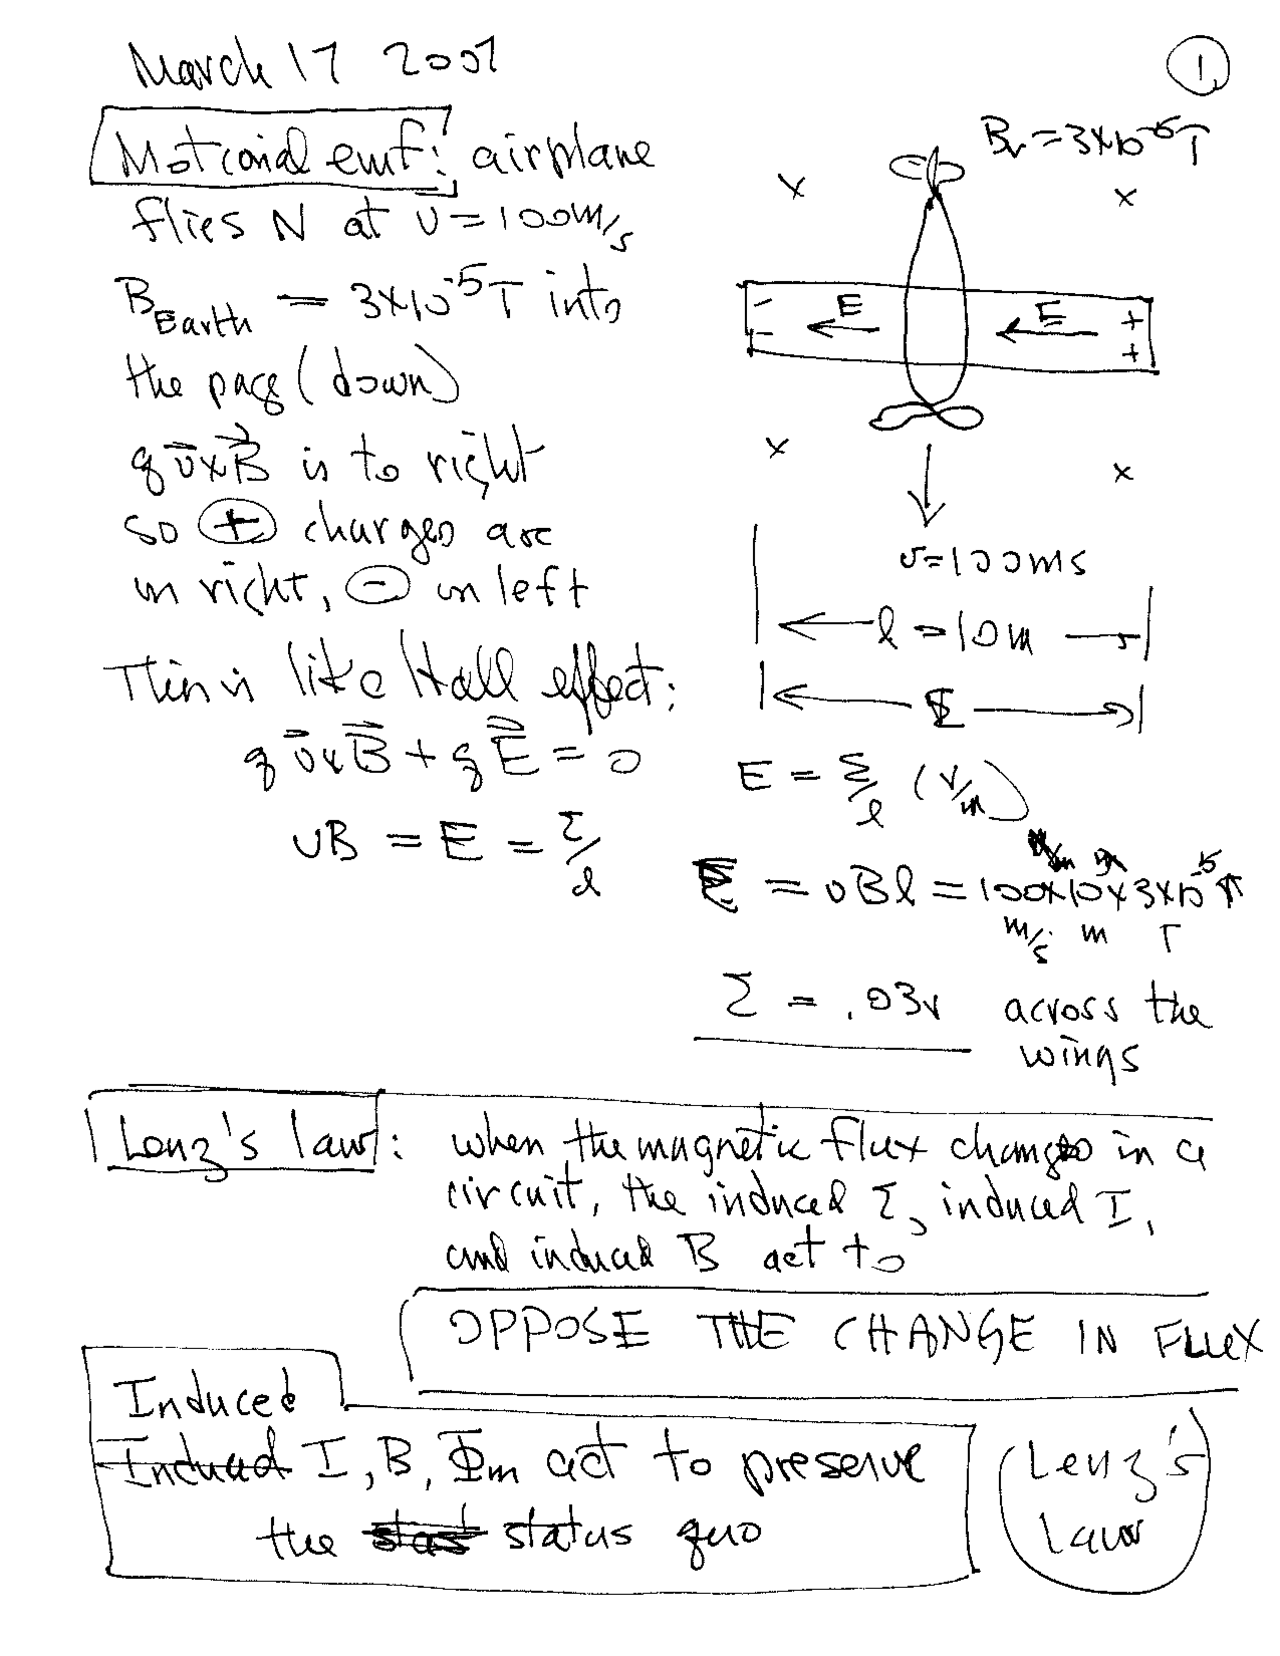 March 17 2007
1
Motional emf: airplane
flies N at v = 100 m/s
B Earth = 3x10^-5 T into
the page (down)
q v x B is to right
so + charges are
on right, - on left
This is like Hall effect:
q v x B + q E = 0
vB = E = Ɛ/l
Bv = 3x10^-5 T
x x
- E E +
- +
x x
v = 100 ms
l = 10m
Ɛ
E = Ɛ/l (V/m)
Ɛ = vBl = 100 x 10 x 3x10^-5 T
m/s m T
Ɛ = .03v across the
wings
Lenz's law: when the magnetic flux changes in a
circuit, the induced Ɛ, induced I,
and induced B act to
OPPOSE THE CHANGE IN FLUX
Induced
Induced I, B, Φm act to preserve
the status quo
Lenz's
law